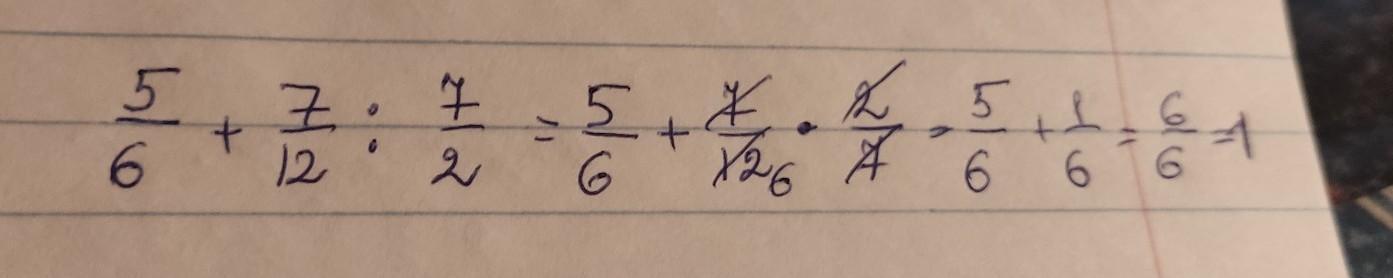 5/6 + 7/12 : 7/2 = 5/6 + 7/12 6 · 2/7 = 5/6 + 1/6 = 6/6 = 1